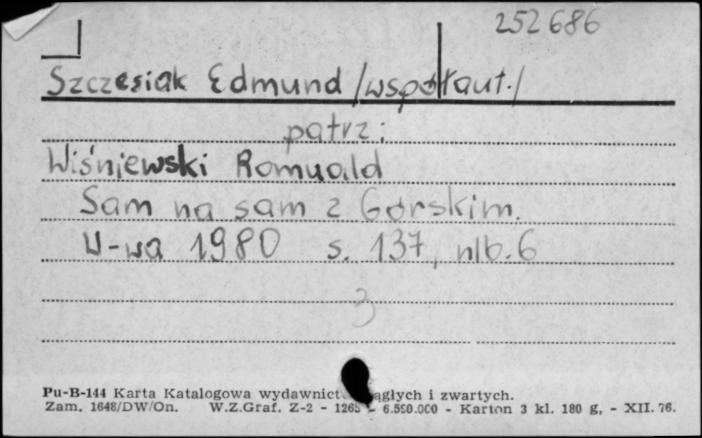 252686
Szczesiak Edmund /współaut./
patrz:
Wiśniewski Romuald
Sam na sam z Górskim.
W-wa 1980 s. 137, nlb. 6
3
Pu-B-144 Karta Katalogowa wydawnict ągłych i zwartych.
Zam. 1648/DW/On. W.Z.Graf. Z-2 - 1265 - 6.550.000 - Karton 3 kl. 180 g, - XII. 76.